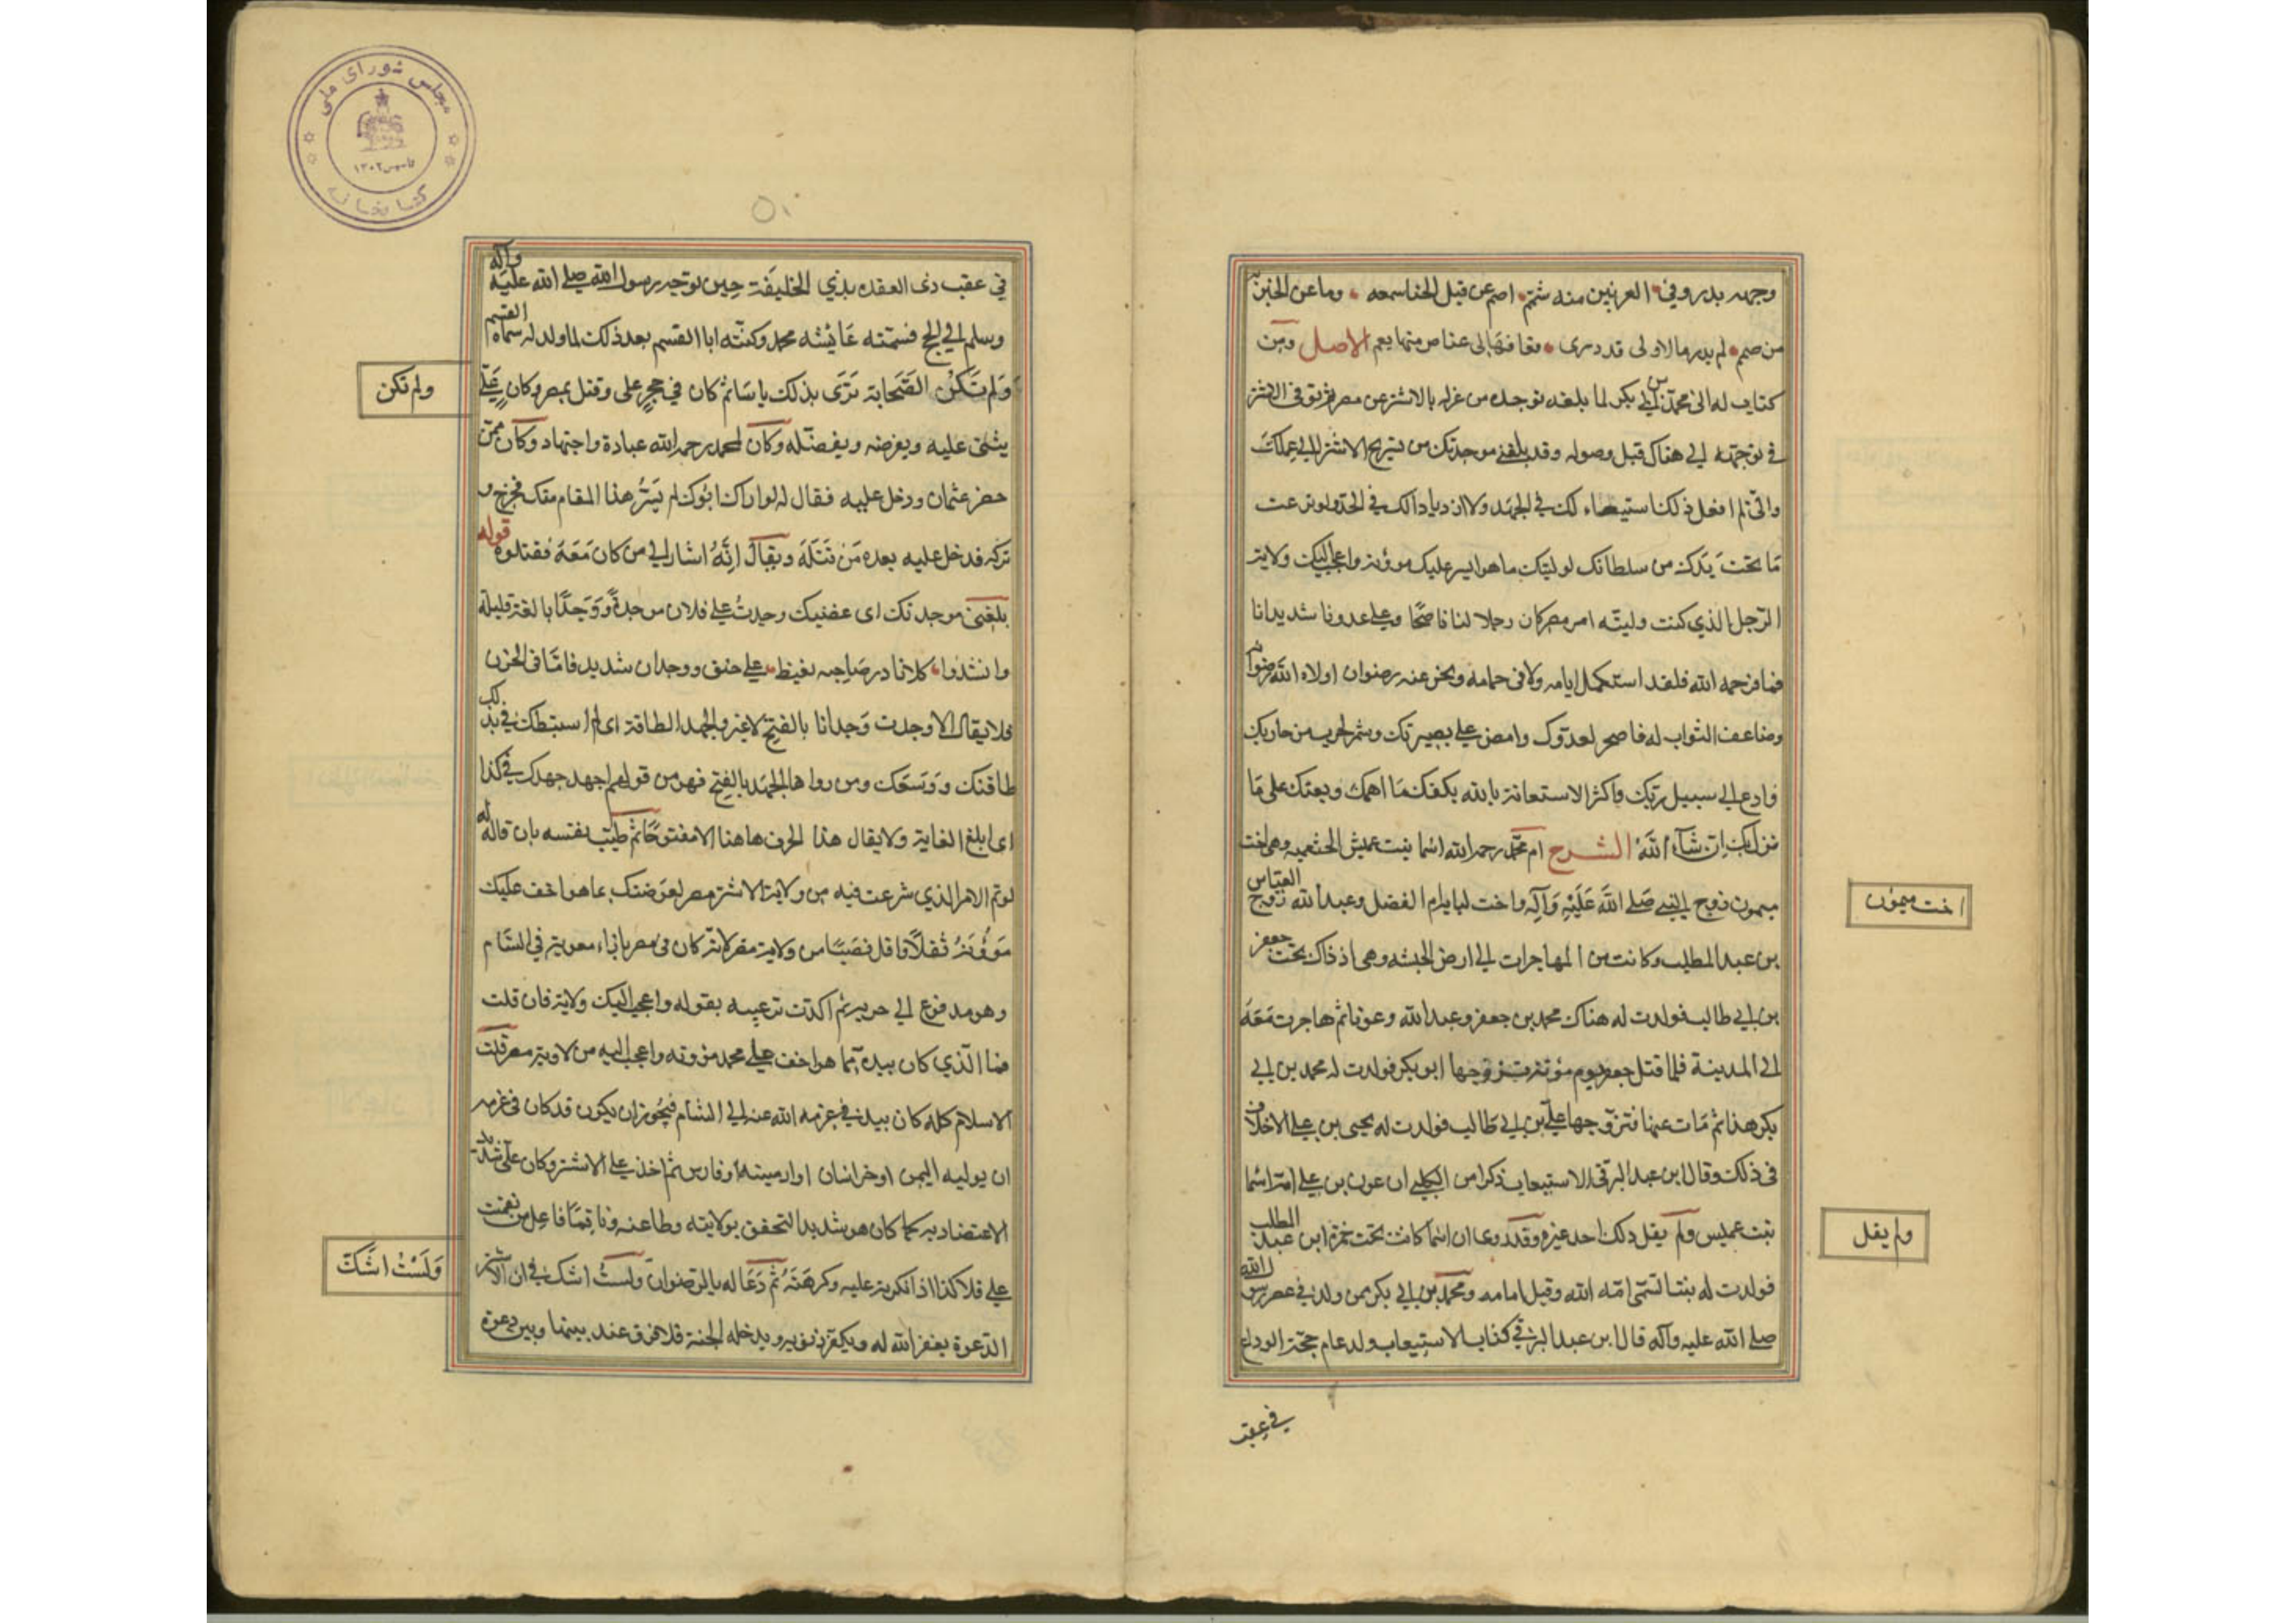 وجهه بدر وفي العرنين منه شمم اصم عن قيل الخنا سمعه وما عن الخير
من صمم لم يدر ما لا ولى قد درى فعافها الى عناص منها يعم الاصل ومن
كتاب له الى محمد بن ابي بكر لما بلغه توجده من عزله بالاشتر عن مصر ثم توفى الاشتر
في توجهه الى هناك قبل وصوله وقد بلغنى موجدتك من تسريح الاشتر الى عملك
وانى لم افعل ذلك استبطاء لك في الجهد ولا ازديادا لك في الجد ولو نزعت
مَا تحت يَدك من سلطانك لوليتك ما هو ايسر عليك مؤنة واعجب اليك ولاية
الرّجل الذي كنت وليته امر مصر كان رجلا لنا ناصحًا وعلى عدونا شديدا نا
قما فرحمه الله فلقد استكمل ايامه ولاقى حمامه ونحن عنه رضوان اولاه الله رضوانه
وضاعف الثواب له فاصحر لعدوّك وامض على بصيرتك وشمر لحرب من حاربك
وادع الى سبيل ربّك واكثر الاستعانة بالله يكفك مَا اهمك ويعنك على مَا
نزل بك ان شآء اللهُ الشرح ام محمّد رحمه الله اسما بنت عميس الخثعميه وهى اخت
ميمون زوج النبي صَلى اللهُ عَلَيْهِ وَآلِه واخت لبابه ام الفضل وعبد الله زوج العباس
بن عبد المطلب وكانت من المهاجرات الى ارض الحبشه وهى اذ ذاك تحت جعفر
بن ابي طالب فولدت له هناك محمد بن جعفر وعبد الله وعونا ثم هاجرت مَعَهُ
الى المدينة فلما قتل جعفر يوم مؤتة تزوجها ابو بكر فولدت له محمد بن ابي
بكر هذا ثم مَات عنها فتزوجها علي بن ابي طَالب فولدت له يحيى بن علي لا خلاف
فى ذلك وقال ابن عبد البر فى الاستيعاب ذكر ابن الكلبي ان عون بن علي امّه اسما
بنت عميس ولم يقل ذلك احد غيره وقد روى ان اسما كانت تحت حمزة ابن عبد المطلب
فولدت له بنتا تسمّى امة الله وقيل امامه ومحمد بن ابي بكر ممن ولد في عصر رسول الله
صلى الله عليه وآله قال ابن عبد البر في كتاب الاستيعاب ولد عام حجّة الوداع
في عقب
اخت ميمون
ولم يقل
في عقب ذى القعده بذي الحليفة حِين توجه رسول الله صلى الله عليه وآله
وسلم الى الحج فسمّته عَائيشه محمد وكنّته ابا القسم بعد ذلك لما ولد له سماه القسم
وَلم تَكُن الصّحَابة تَرَى بذلك باسَا ثم كان في حجر على وقتل بمصر وكان عَلي
يثنى عليه ويقرضه ويفضله وكان لمحمد رحمه الله عبادة واجتهاد وكان ممّن
حضر عثمان ودخل عليه فقال له لو راك ابُوك لم يَسُرّه هذا المقام منك فخرج و
تركه فدخل عليه بعده مَن قتَلَهُ ويقال انّهُ اشار الى من كان مَعَهُ فقتلوه قوله
بلغنى موجدتك اى غضبك وجدتُ على فلان موجدةً وَوَجدًا بالغة قليلة
وانشدوا كلانا رد صَاحبه بغيظ على حنق ووجدان شديد فامّا فى الحزن
فلا يقال الا وجدت وَجدا نا بالفتح لا غير والجهد الطاقة اى لم استبطئك في بذلك
طاقتك وَوَسعَك ومن رواها الجهَد بالفتح فهو من قولهم اجهد جهدك في كذا
اى ابلغ الغاية ولا يقال هذا الحرف هاهنا الا مفتوحًا ثم طيّب نفسه بان قال له
لو تم الامر الذي شرعت فيه من ولاية الاشتر مصر لعوّضتك بما هو اخف عليك
مؤُنَةُ ثقلًا واقل نصَبًا من ولاية مصر لانّه كان فى مصر بازاء معوية في الشام
وهو مدفوع الى حربه ثم اكدت ترغيبه بقوله واعجب اليك ولاية فان قلت
فما الّذي كان بيده مما هو اخف على محمد مؤونه واعجب اليه من لاوية مصر قلت
الاسلام كله كان بيد علي رضى الله عنه الى الشام فيجُوز ان يكون قد كان فى عزمه
ان يوليه اليمن او خراسان او ارمينيه او فارس ثم اخذ على الاشتر وكان علي شديد
الاعتضاد به كما كان هو شديد التحقق بولايته وطاعته وناقِمًا فاعل من نقمت
على فلا كذا اذ انكرته عليه وكرهتَهُ ثم دَعَا له بالرّضوان ولستُ اشك في ان الاشتر
الدّعوة يغفر الله له ويكفّر ذنوبه ويدخله الجنة فلا فرق عند بينها وبين دعوة
ولم تكن
وَلَسْتُ اشَكّ
مجلس شورای ملی
تاسیس ۱۳۰۲
کتابخانه